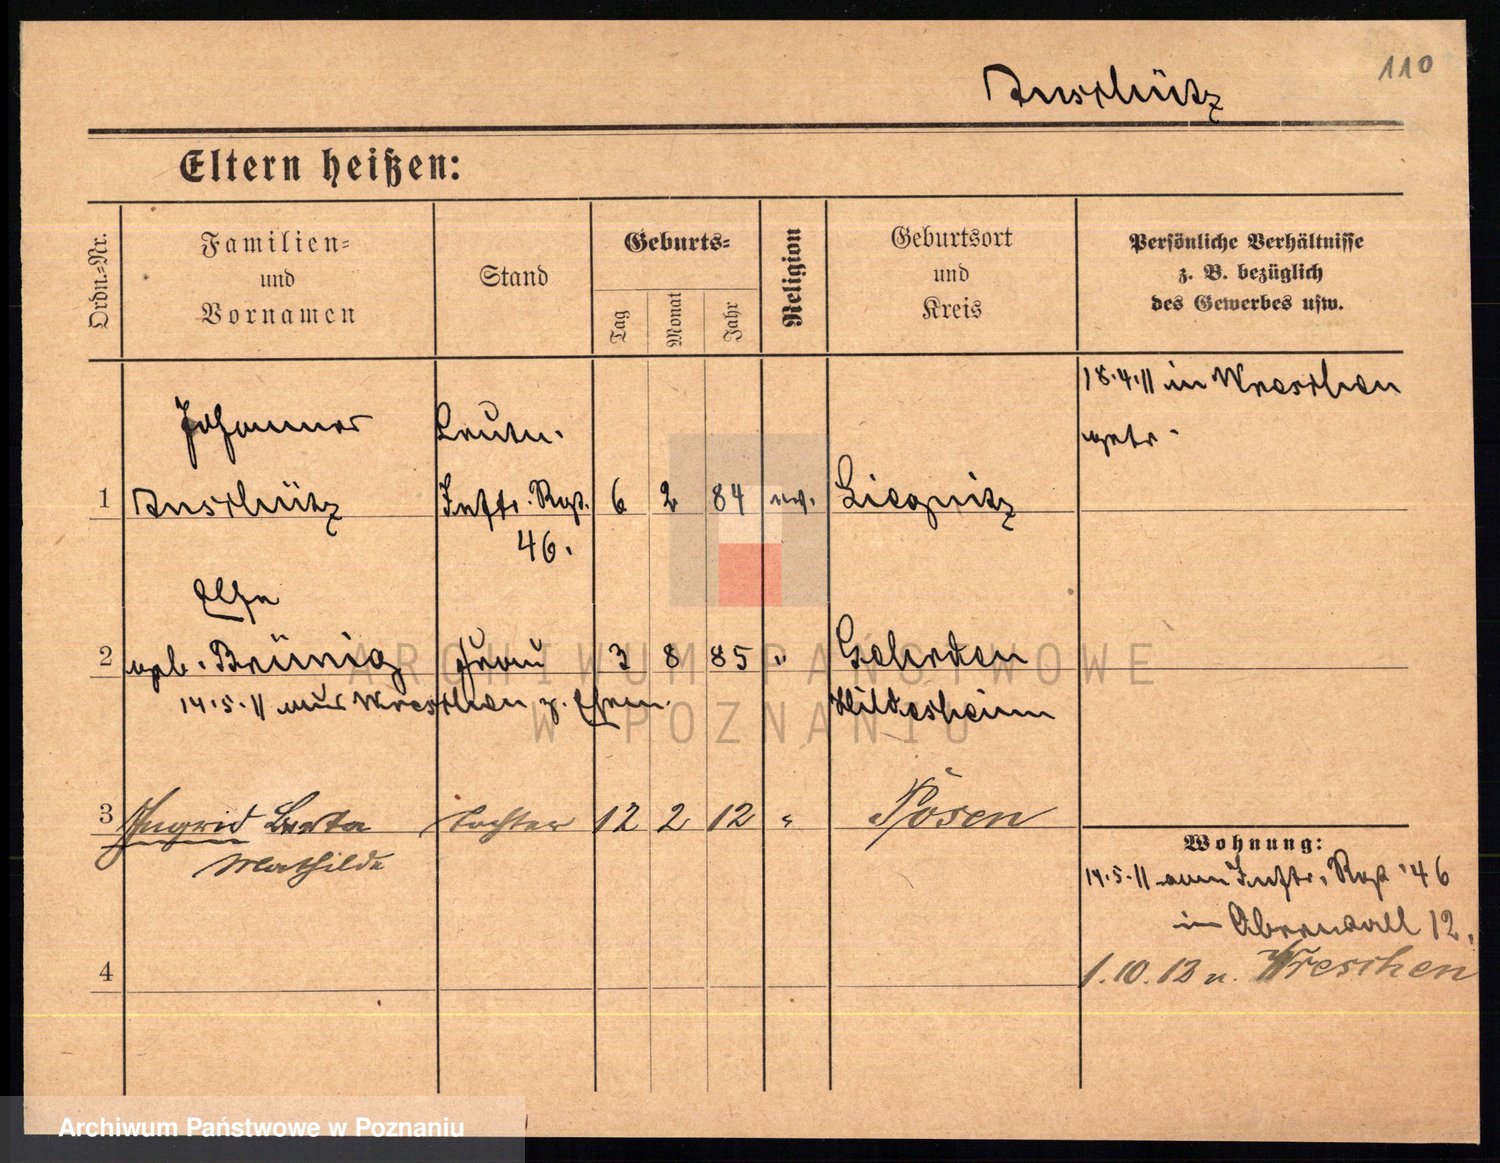 110
Anschütz
Eltern heißen:
Ordn.-Nr.
Familien-
und
Vornamen
Stand
Geburts-
Tag
Monat
Jahr
Religion
Geburtsort
und
Kreis
Persönliche Verhältnisse
z. B. bezüglich
des Gewerbes usw.
18.4.11 in Wreschen
getr.
Johannes
Leutn.
1 Anschütz Inftr. Rgt. 6 2 84 ev. Liegnitz
46.
Else
2 geb. Brünig Frau 3 8 85 " Gehrden
14.5.11 aus Wreschen z. Ehem. Hildesheim
3 Ingrid Berta Tochter 12 2 12 " Posen
Mathilde
Wohnung:
14.5.11 vom Inftr. Rgt 46
in Oberwall 12.
4
1.10.12 n. Wreschen
ARCHIWUM PAŃSTWOWE
W POZNANIU
Archiwum Państwowe w Poznaniu